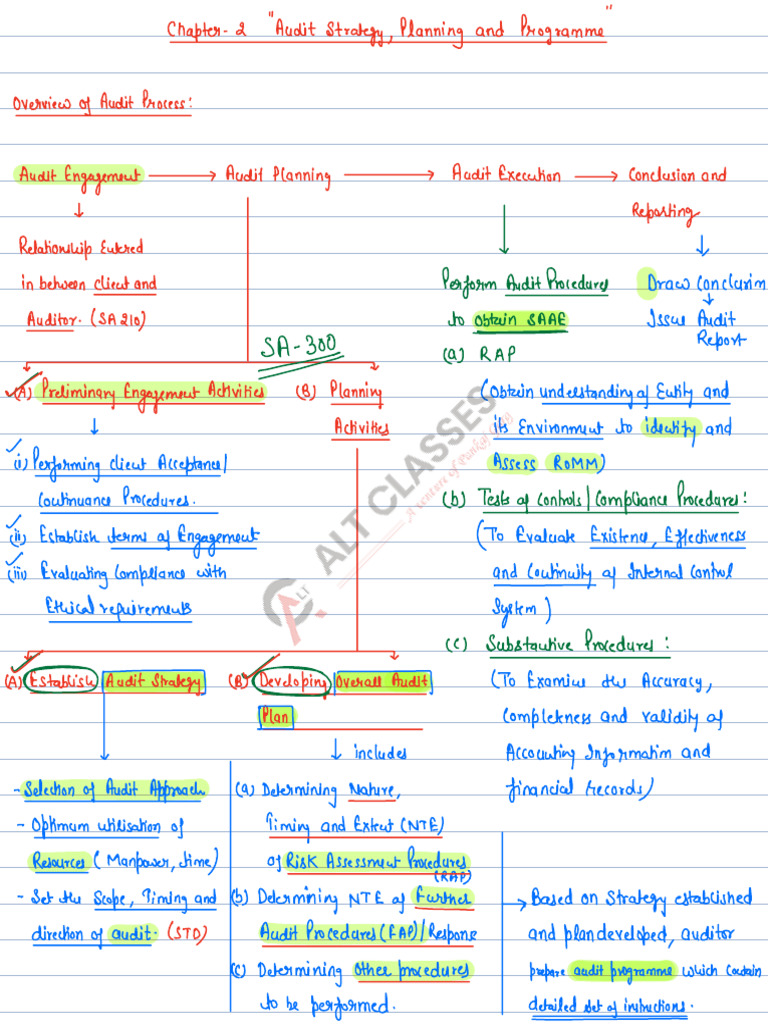 Chapter-2 "Audit Strategy, Planning and Programme"
Overview of Audit Process:
Audit Engagement → Audit Planning → Audit Execution → Conclusion and
Reporting
Relationship Entered
in between client and
Auditor. (SA 210)
SA-300
(A) Preliminary Engagement Activities
(i) Performing client Acceptance/
Continuance Procedures.
(ii) Establish terms of Engagement
(iii) Evaluating Compliance with
Ethical requirements
(B) Planning
Activities
(A) Establish Audit Strategy
- Selection of Audit Approach
- Optimum utilisation of
Resources (Manpower, time)
- Set the Scope, Timing and
direction of audit. (STD)
(B) Developing Overall Audit
Plan
includes
(a) Determining Nature,
Timing and Extent (NTE)
of Risk Assessment Procedures
(RAP)
(b) Determining NTE of Further
Audit Procedures (FAP)/Response
(c) Determining Other procedures
to be performed.
Perform Audit Procedures
to obtain SAAE
(a) RAP
(Obtain understanding of Entity and
its Environment to identify and
Assess ROMM)
(b) Tests of controls/Compliance Procedures:
(To Evaluate Existence, Effectiveness
and Continuity of Internal Control
System)
(c) Substantive Procedures:
(To Examine the Accuracy,
Completeness and validity of
Accounting Information and
financial records)
Draw Conclusion
Issue Audit
Report
→ Based on Strategy established
and plan developed, auditor
prepare audit programme which contain
detailed set of instructions.
ALT CLASSES
A venture of
ALT